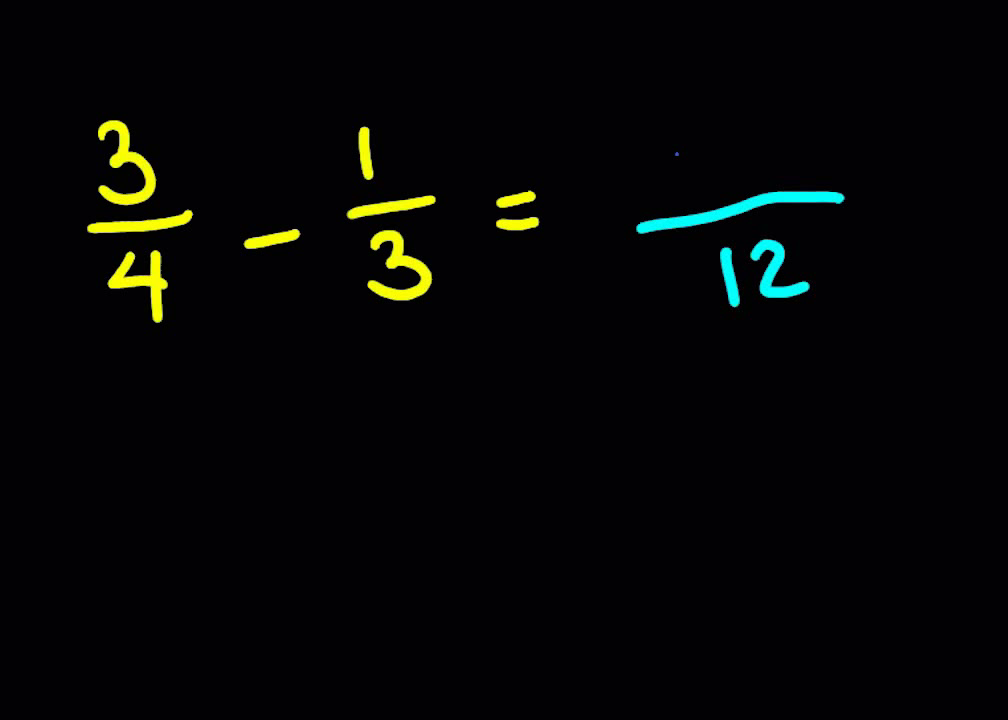 3/4 - 1/3 = /12